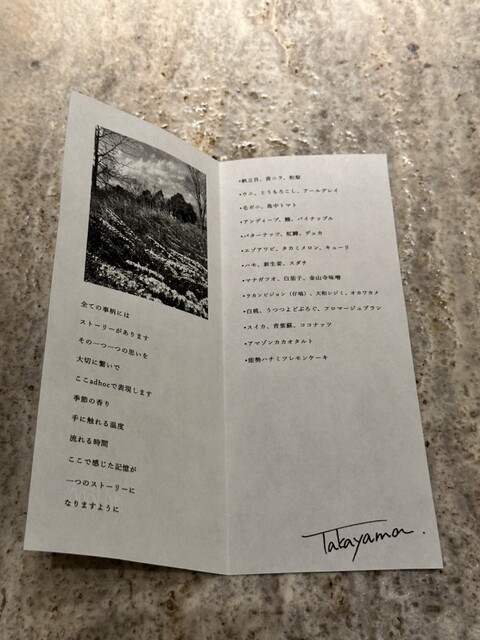 全ての事柄には
ストーリーがあります
その一つ一つの思いを
大切に繋いで
ここadhocで表現します
季節の香り
手に触れる温度
流れる時間
ここで感じた記憶が
一つのストーリーに
なりますように
•帆立貝、黄ニラ、和梨
•ウニ、とうもろこし、アールグレイ
•毛ガニ、島中トマト
•アンディーブ、鰻、パイナップル
•バターナッツ、紅鱒、デュカ
•エゾアワビ、タカミメロン、キューリ
•ハモ、新生姜、スダチ
•マナガツオ、白茄子、金山寺味噌
•ラカンピジョン（仔鳩）、大和シジミ、オカワカメ
•白桃、うつつよどぶろぐ、フロマージュブラン
•スイカ、青紫蘇、ココナッツ
•アマゾンカカオタルト
•能勢ハチミツレモンケーキ
Takayama.